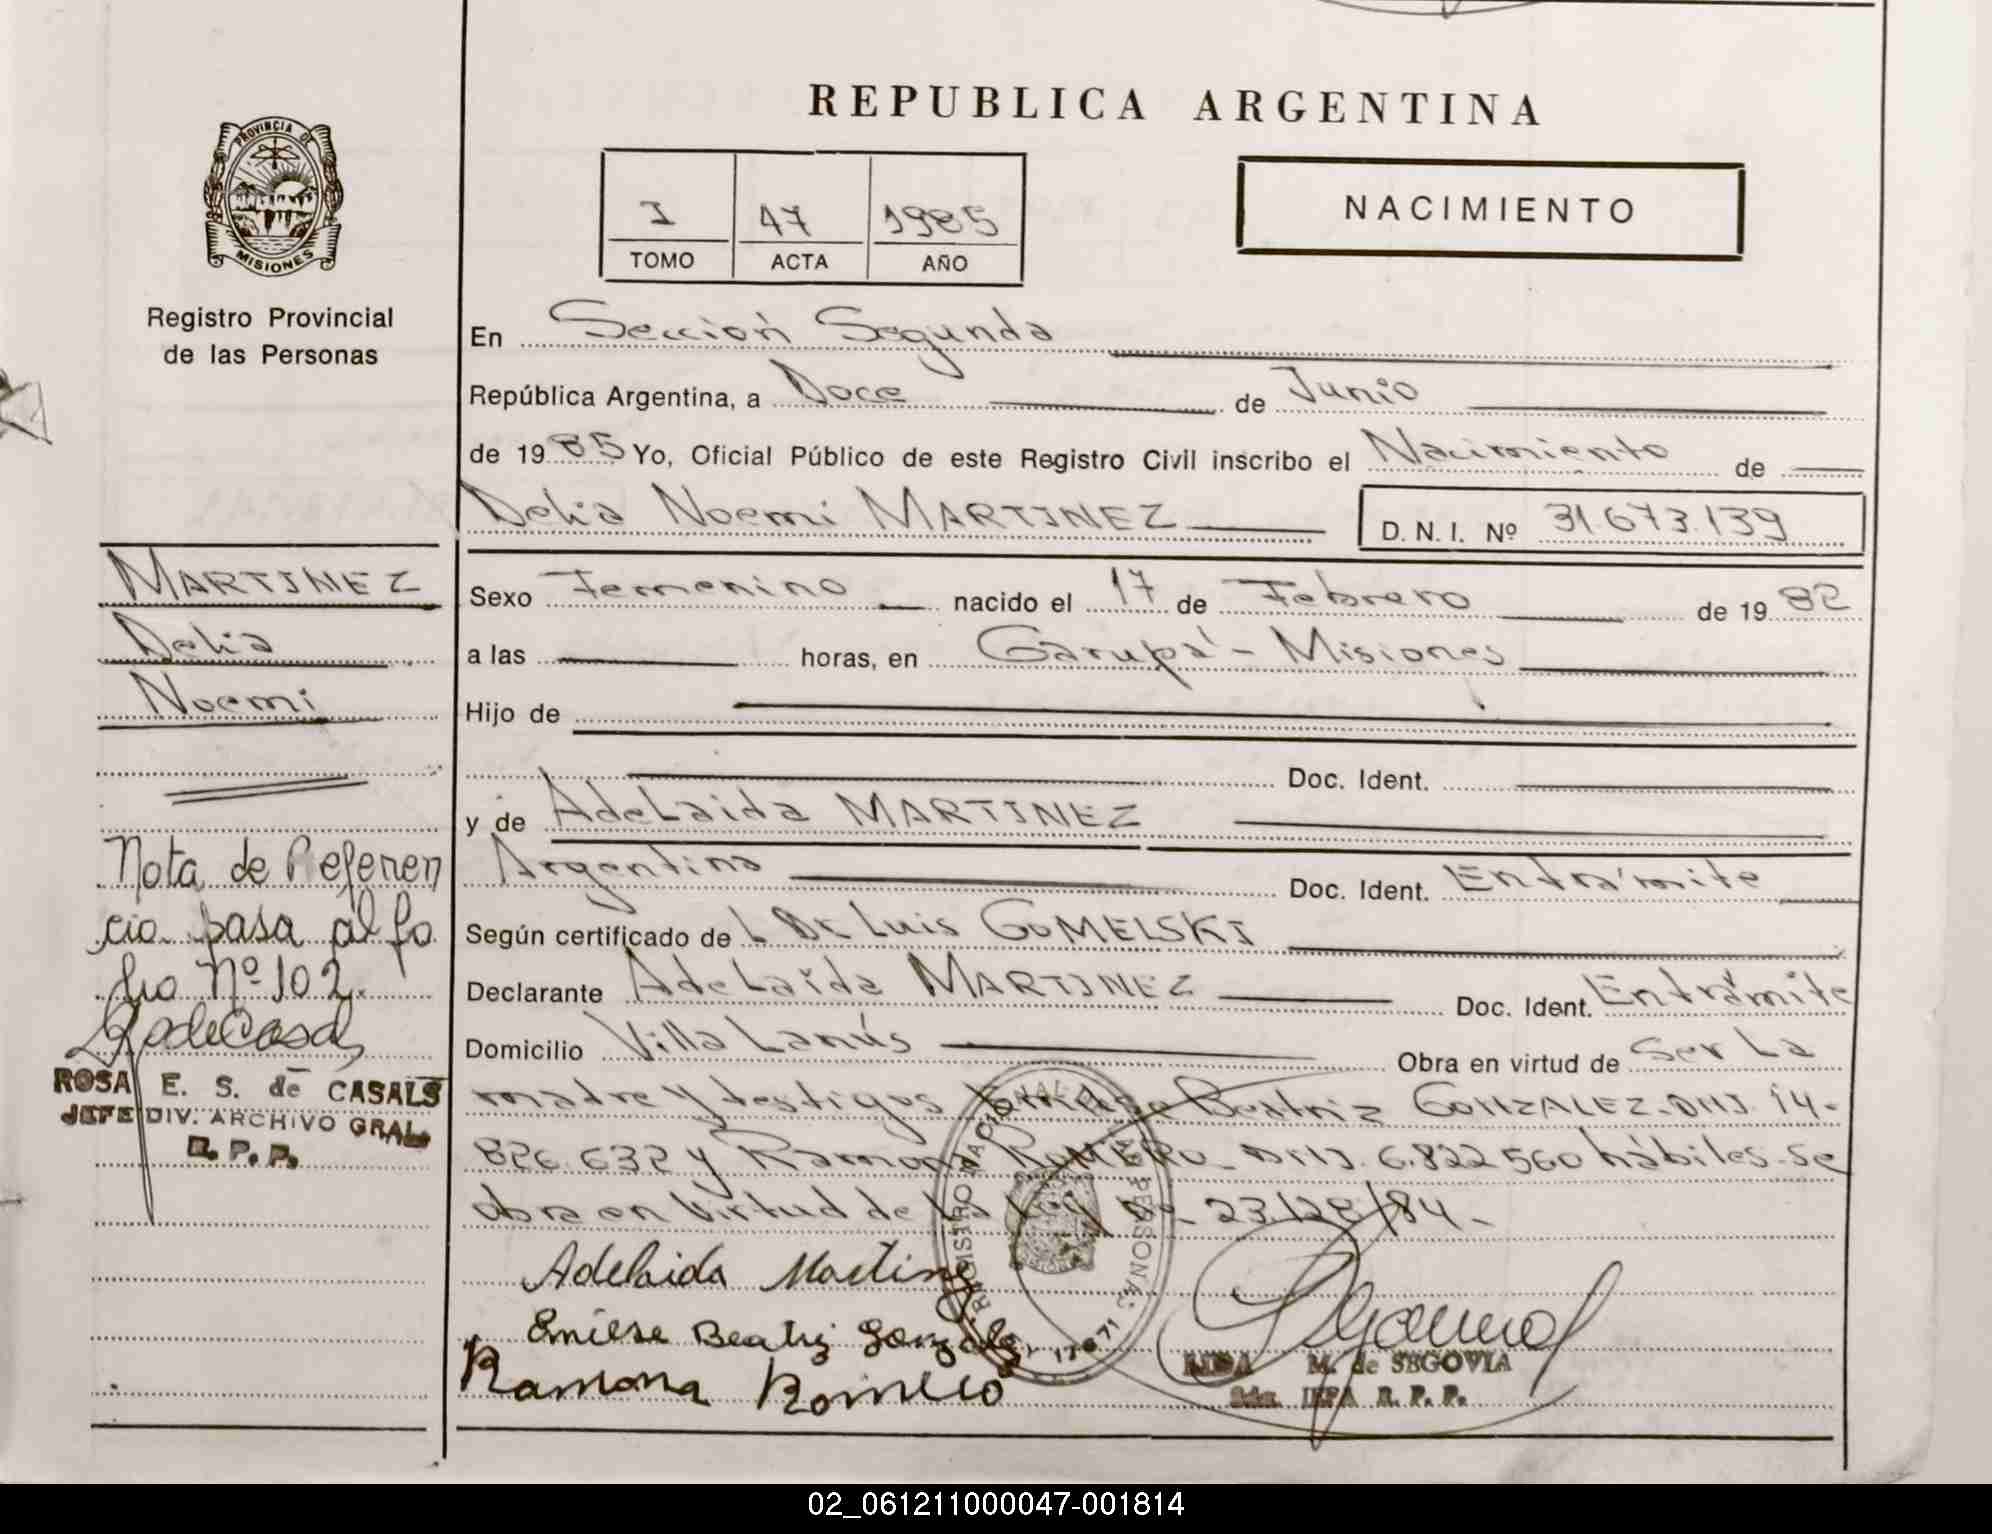 REPUBLICA ARGENTINA
PROVINCIA DE
MISIONES
Registro Provincial
de las Personas
I 47 1985
TOMO ACTA AÑO
NACIMIENTO
En Sección Segunda
República Argentina, a Doce de Junio
de 1985 Yo, Oficial Público de este Registro Civil inscribo el Nacimiento de
Delia Noemi MARTINEZ D. N. I. Nº 31.673.139
MARTINEZ
Delia
Noemi
Sexo Femenino nacido el 17 de Febrero de 1982
a las horas, en Garupá - Misiones
Hijo de
Doc. Ident.
y de Adelaida MARTINEZ
Argentina Doc. Ident. Entrámite
Según certificado de L Dr Luis GOMELSKI
Declarante Adelaida MARTINEZ Doc. Ident. Entrámite
Domicilio Villa Lanús Obra en virtud de Ser La
madre y testigos Beatriz GONZALEZ-DNI. 14-
826.632 y Ramona ROMERO- DNI. 6.822560 hábiles-se
obra en virtud de la Ley Nº- 23.128/84-
Nota de Referen
cia pasa al fo
lio Nº 102.
ROSA E. S. de CASALS
JEFE DIV. ARCHIVO GRAL.
R. P. P.
Adelaida Martine
Emilse Beatriz Gonzalez
Ramona Romero
M. de SEGOVIA
JEFA R. P. P.
02_061211000047-001814